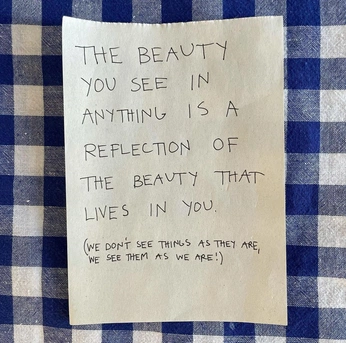 THE BEAUTY
YOU SEE IN
ANYTHING IS A
REFLECTION OF
THE BEAUTY THAT
LIVES IN YOU.
(WE DON'T SEE THINGS AS THEY ARE,
WE SEE THEM AS WE ARE!)